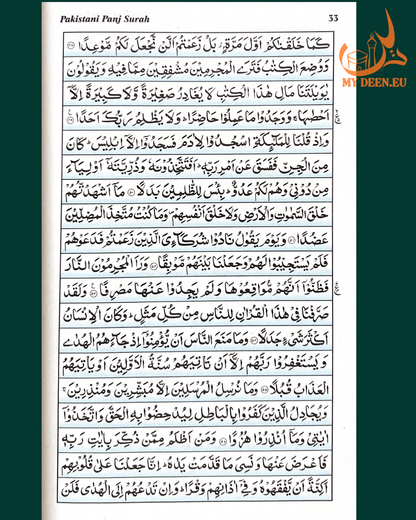 Pakistani Panj Surah 33
MYDEEN.EU
كَمَا خَلَقْنٰكُمْ اَوَّلَ مَرَّةٍۭ ؗ بَلْ زَعَمْتُمْ اَلَّنْ نَّجْعَلَ لَكُمْ مَّوْعِدًا
وَوُضِعَ الْكِتٰبُ فَتَرَى الْمُجْرِمِيْنَ مُشْفِقِيْنَ مِمَّا فِيْهِ وَيَقُوْلُوْنَ
يٰوَيْلَتَنَا مَالِ هٰذَا الْكِتٰبِ لَا يُغَادِرُ صَغِيْرَةً وَّلَا كَبِيْرَةً اِلَّاۤ
اَحْصٰىهَا ۚ وَوَجَدُوْا مَا عَمِلُوْا حَاضِرًا ؕ وَلَا يَظْلِمُ رَبُّكَ اَحَدًا
وَاِذْ قُلْنَا لِلْمَلٰٓئِكَةِ اسْجُدُوْا لِاٰدَمَ فَسَجَدُوْۤا اِلَّاۤ اِبْلِيْسَ ؕ كَانَ
مِنَ الْجِنِّ فَفَسَقَ عَنْ اَمْرِ رَبِّهٖ ؕ اَفَتَتَّخِذُوْنَهٗ وَذُرِّيَّتَهٗۤ اَوْلِيَآءَ
مِنْ دُوْنِيْ وَهُمْ لَكُمْ عَدُوٌّ ؕ بِئْسَ لِلظّٰلِمِيْنَ بَدَلًا مَاۤ اَشْهَدْتُّهُمْ
خَلْقَ السَّمٰوٰتِ وَالْاَرْضِ وَلَا خَلْقَ اَنْفُسِهِمْ ۪ وَمَا كُنْتُ مُتَّخِذَ الْمُضِلِّيْنَ
عَضُدًا وَيَوْمَ يَقُوْلُ نَادُوْا شُرَكَآءِيَ الَّذِيْنَ زَعَمْتُمْ فَدَعَوْهُمْ
فَلَمْ يَسْتَجِيْبُوْا لَهُمْ وَجَعَلْنَا بَيْنَهُمْ مَّوْبِقًا وَرَاَ الْمُجْرِمُوْنَ النَّارَ
فَظَنُّوْۤا اَنَّهُمْ مُّوَاقِعُوْهَا وَلَمْ يَجِدُوْا عَنْهَا مَصْرِفًا وَلَقَدْ
صَرَّفْنَا فِيْ هٰذَا الْقُرْاٰنِ لِلنَّاسِ مِنْ كُلِّ مَثَلٍ ؕ وَكَانَ الْاِنْسَانُ
اَكْثَرَ شَيْءٍ جَدَلًا وَمَا مَنَعَ النَّاسَ اَنْ يُّؤْمِنُوْۤا اِذْ جَآءَهُمُ الْهُدٰى
وَيَسْتَغْفِرُوْا رَبَّهُمْ اِلَّاۤ اَنْ تَاْتِيَهُمْ سُنَّةُ الْاَوَّلِيْنَ اَوْ يَاْتِيَهُمُ
الْعَذَابُ قُبُلًا وَمَا نُرْسِلُ الْمُرْسَلِيْنَ اِلَّا مُبَشِّرِيْنَ وَمُنْذِرِيْنَ ۚ
وَيُجَادِلُ الَّذِيْنَ كَفَرُوْا بِالْبَاطِلِ لِيُدْحِضُوْا بِهِ الْحَقَّ وَاتَّخَذُوْۤا
اٰيٰتِيْ وَمَاۤ اُنْذِرُوْا هُزُوًا وَمَنْ اَظْلَمُ مِمَّنْ ذُكِّرَ بِاٰيٰتِ رَبِّهٖ
فَاَعْرَضَ عَنْهَا وَنَسِيَ مَا قَدَّمَتْ يَدٰهُ ؕ اِنَّا جَعَلْنَا عَلٰى قُلُوْبِهِمْ
اَكِنَّةً اَنْ يَّفْقَهُوْهُ وَفِيْۤ اٰذَانِهِمْ وَقْرًا ؕ وَاِنْ تَدْعُهُمْ اِلَى الْهُدٰى فَلَنْ